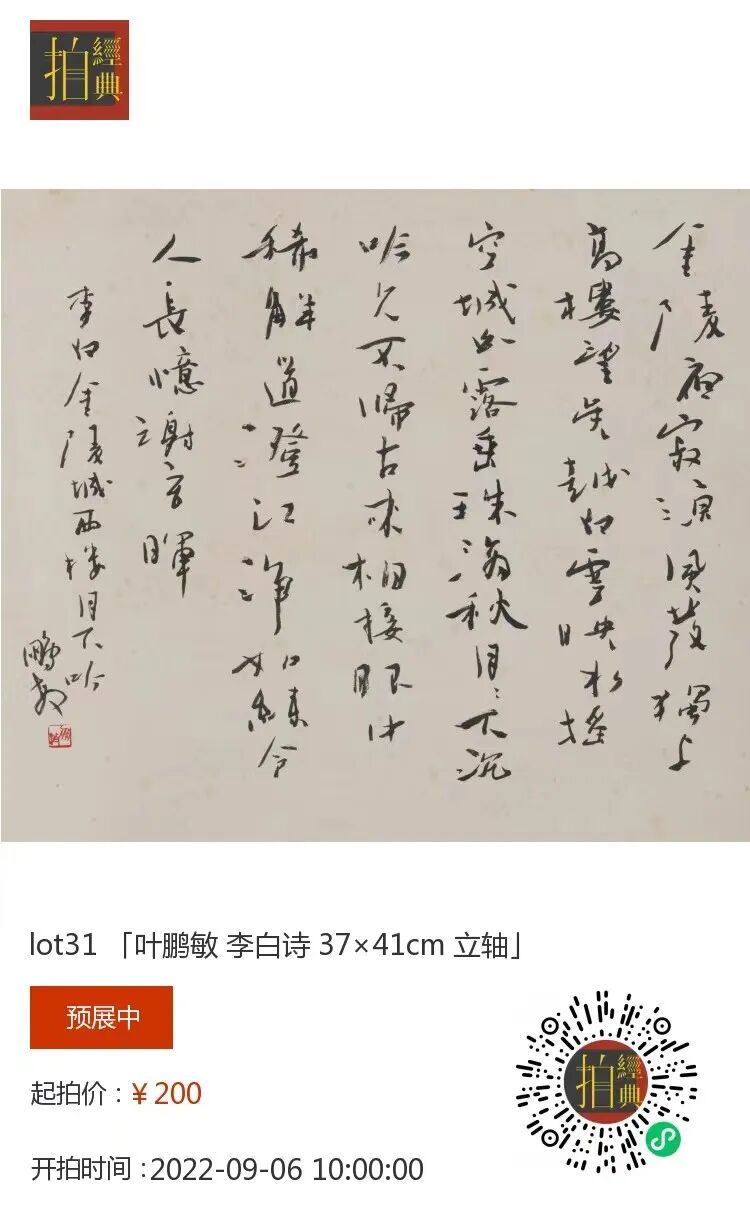 拍經典
金陵夜寂涼風發獨上
高樓望吴越白雲映水摇
空城白露垂珠滴秋月〻下沉
吟久不歸古來相接眼中
稀解道澄江净如練令
人長憶謝玄暉
李白金陵城西楼月下吟
鵬敏
lot31 「叶鹏敏 李白诗 37×41cm 立轴」
预展中
起拍价：¥200
开拍时间：2022-09-06 10:00:00
拍經典